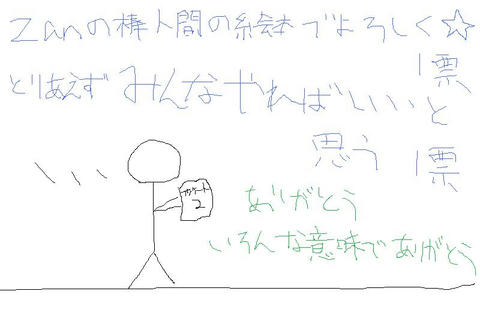 Zanの棒人間の絵本でよろしく☆
1票
とりあえず みんなやればいいと
思う 1票
アンケート
2
ありがとう
いろんな意味でありがとう